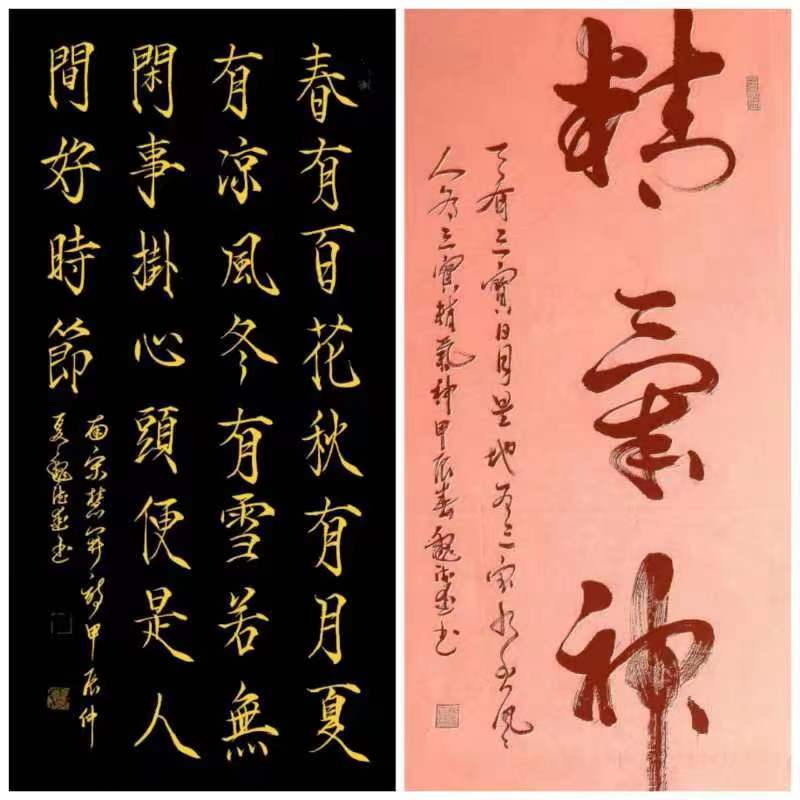 春有百花秋有月夏
有凉風冬有雪若無
閑事掛心頭便是人
間好時節
南宋慧開詩甲辰仲
夏魏书
精氣神
天有三寶日月星地有三宝水火风
人有三寶精氣神甲辰春魏书